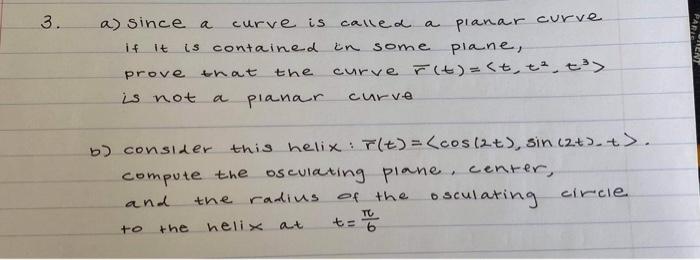 3. a) since a curve is called a planar curve
if it is contained in some plane,
prove that the curve r̅(t)=<t, t², t³>
is not a planar curve
b) consider this helix: r̅(t)=<cos(2t), sin(2t), t>.
compute the osculating plane, center,
and the radius of the osculating circle
to the helix at t=π/6